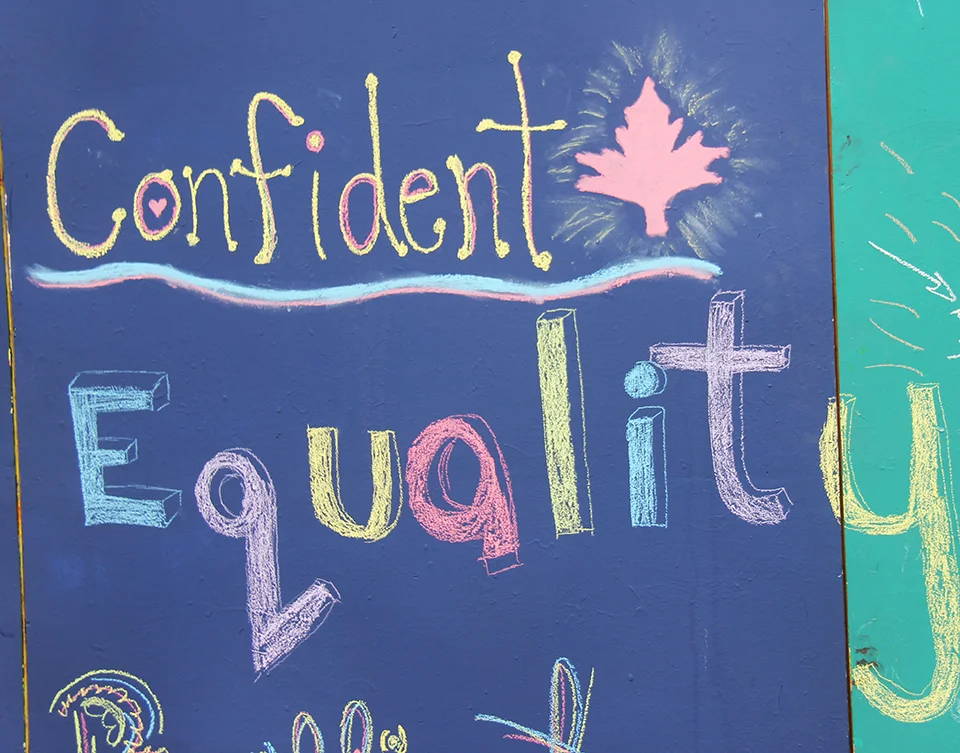 Confident
Equality